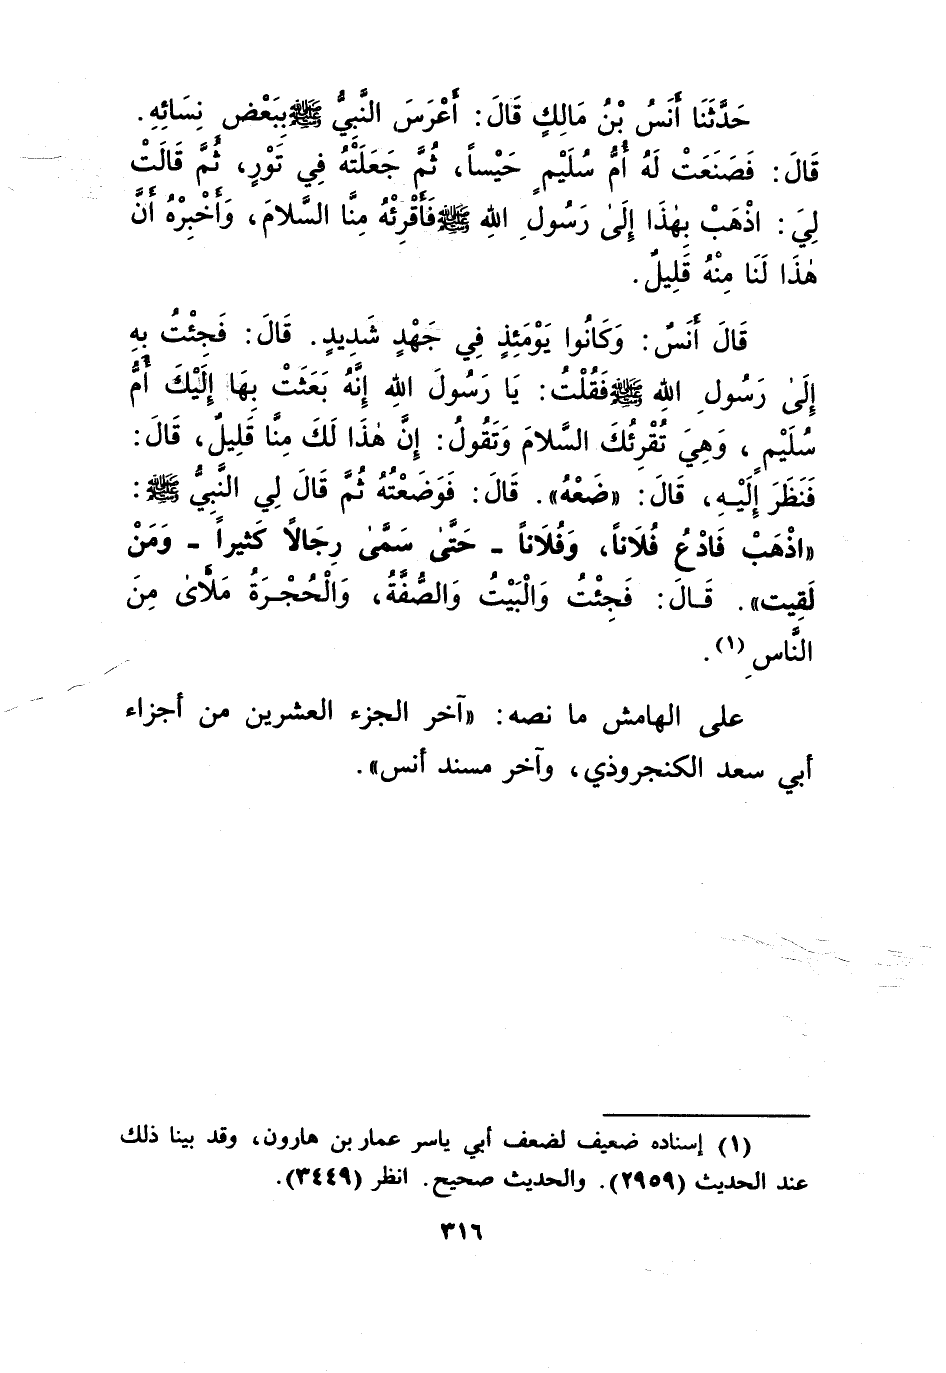 حَدَّثَنَا أَنَسُ بْنُ مَالِكٍ قَالَ: أَعْرَسَ النَّبِيُّ ﷺ بِبَعْضِ نِسَائِهِ.
قَالَ: فَصَنَعَتْ لَهُ أُمُّ سُلَيْمٍ حَيْساً، ثُمَّ جَعَلَتْهُ فِي تَوْرٍ، ثُمَّ قَالَتْ
لِيَ: اذْهَبْ بِهٰذَا إِلَىٰ رَسُولِ اللهِ ﷺ فَأَقْرِئْهُ مِنَّا السَّلامَ، وَأَخْبِرْهُ أَنَّ
هٰذَا لَنَا مِنْهُ قَلِيلٌ.
قَالَ أَنَسٌ: وَكَانُوا يَوْمَئِذٍ فِي جَهْدٍ شَدِيدٍ. قَالَ: فَجِئْتُ بِهِ
إِلَىٰ رَسُولِ اللهِ ﷺ فَقُلْتُ: يَا رَسُولَ اللهِ إِنَّهُ بَعَثَتْ بِهَا إِلَيْكَ أُمُّ
سُلَيْمٍ، وَهِيَ تُقْرِئُكَ السَّلامَ وَتَقُولُ: إِنَّ هٰذَا لَكَ مِنَّا قَلِيلٌ، قَالَ:
فَنَظَرَ إِلَيْهِ، قَالَ: «ضَعْهُ». قَالَ: فَوَضَعْتُهُ ثُمَّ قَالَ لِي النَّبِيُّ ﷺ:
«اذْهَبْ فَادْعُ فُلَاناً، وَفُلَاناً - حَتَّىٰ سَمَّىٰ رِجَالاً كَثِيراً - وَمَنْ
لَقِيت». قَالَ: فَجِئْتُ وَالْبَيْتُ وَالصُّفَّةُ، وَالْحُجْرَةُ مَلْأَىٰ مِنَ
النَّاسِ (١).
على الهامش ما نصه: «آخر الجزء العشرين من أجزاء
أبي سعد الكنجروذي، وآخر مسند أنس».
(١) إسناده ضعيف لضعف أبي ياسر عمار بن هارون، وقد بينا ذلك
عند الحديث (٢٩٥٩). والحديث صحيح. انظر (٣٤٤٩).
٣١٦